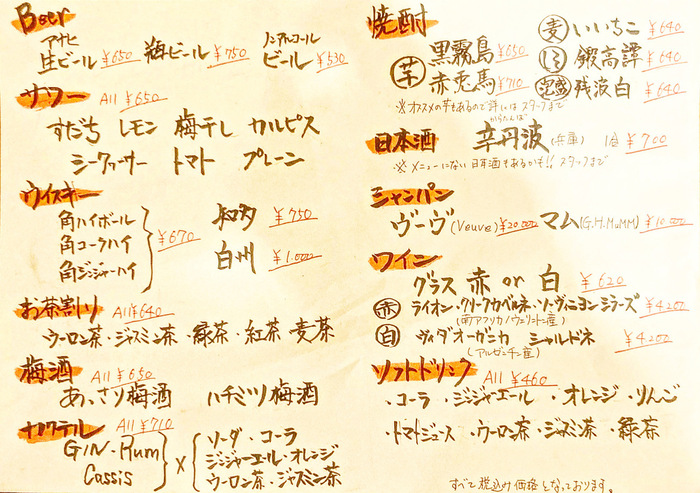 Beer
アサヒ
生ビール ¥650 瓶ビール ¥750 ノンアルコール ビール ¥530
サワー All ¥650
すだち レモン 梅干し カルピス
シークァーサー トマト プレーン
ウイスキー
角ハイボール
角コークハイ ¥670
角ジンジャーハイ
知多 ¥750
白州 ¥1,000
お茶割り All ¥640
ウーロン茶・ジャスミン茶・緑茶・紅茶・麦茶
梅酒 All ¥650
あっさり梅酒 ハチミツ梅酒
カクテル All ¥710
GIN・Rum
Cassis
×
ソーダ・コーラ
ジンジャーエール・オレンジ
ウーロン茶・ジャスミン茶
焼酎
芋 黒霧島 ¥650
赤兎馬 ¥710
麦 いいちこ ¥640
鍛高譚 ¥640
泡盛 残波白 ¥640
※オススメの芋もあるので詳しくはスタッフまで
日本酒 からたんば 辛丹波(兵庫) 1合 ¥700
※メニューにない日本酒もあるかも!! スタッフまで
シャンパン
ヴーヴ(Veuve) ¥20,000 マム(G.H.MuMM) ¥10,000
ワイン
グラス 赤 or 白 ¥620
赤 ライオン・クリークカベルネ・ソーヴィニヨンシラーズ ¥4,200
白 ヴィダオーガニカ シャルドネ ¥4,200
(アルゼンチン産)
ソフトドリンク All ¥460
・コーラ ・ジンジャエール ・オレンジ ・りんご
・トマトジュース ・ウーロン茶・ジャスミン茶 ・緑茶
すべて税込み価格となっております。